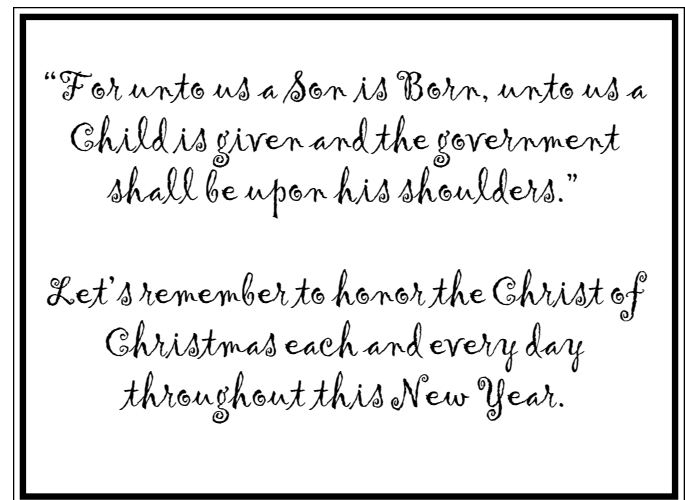 “For unto us a Son is Born, unto us a
Child is given and the government
shall be upon his shoulders.”
Let’s remember to honor the Christ of
Christmas each and every day
throughout this New Year.